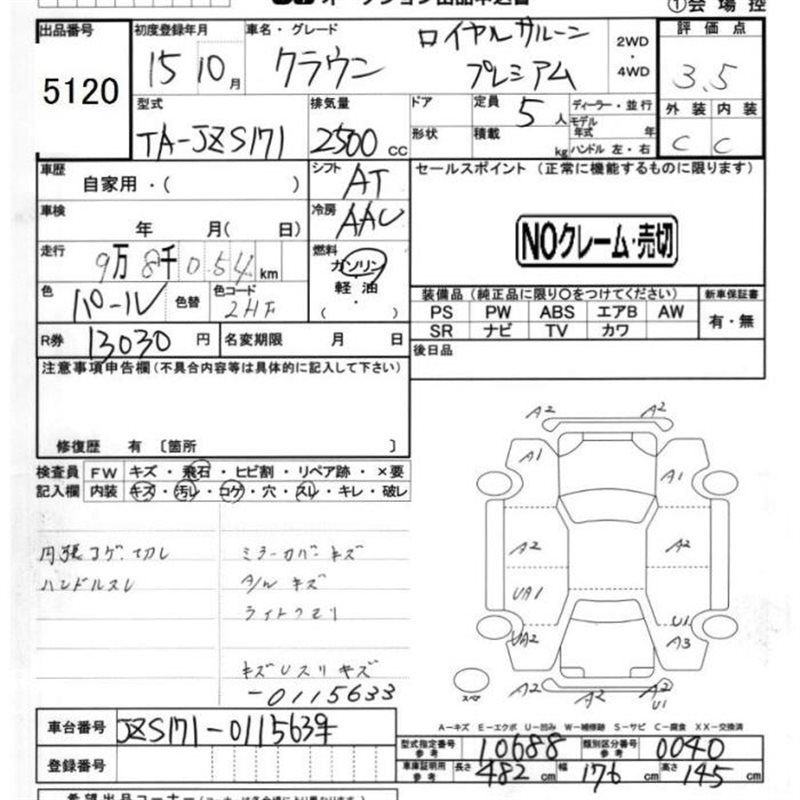 ①会場控
出品番号
5120
初度登録年月
15 10月
車名・グレード
クラウン
ロイヤルサルーン
プレミアム
2WD
・
4WD
評価点
3.5
型式
TA-JZS171
排気量
2500 cc
ドア
定員 5人
形状
積載 kg
ディーラー・並行
モデル年式 年
ハンドル 左・右
外装 内装
C C
車歴
自家用・( )
シフト AT
セールスポイント (正常に機能するものに限ります)
車検
年 月( 日)
冷房 AAC
NOクレーム・売切
走行
9万8千054km
燃料
ガソリン
軽油
( ・ )
色 パール
色替
色コード 2HF
装備品(純正品に限り○をつけてください)
新車保証書
PS PW ABS エアB AW
有・無
SR ナビ TV カワ
R券 13030円
名変期限 月 日
後日品
注意事項申告欄(不具合内容等は具体的に記入して下さい)
修復歴 有〔箇所 〕
検査員 FW キズ・飛石・ヒビ割・リペア跡・×要
記入欄 内装 キズ・汚レ・コゲ・穴・スレ・キレ・破レ
内張コゲ、切レ
ハンドルスレ
ミラーカバーキズ
A/W キズ
ライトクモリ
キズUスリキズ
-0115633
A2 A2
A1 A1
A2 A2
UA1
UA2
U1
A3
スペア
A2 A2 A2
U1
A-キズ E-エクボ U-凹み W-補修跡 S-サビ C-腐食 XX-交換済
車台番号
登録番号
型式指定番号 参考 10688
類別区分番号 参考 0040
車庫証明用 参考 長さ 482cm 幅 176cm 高さ 145cm